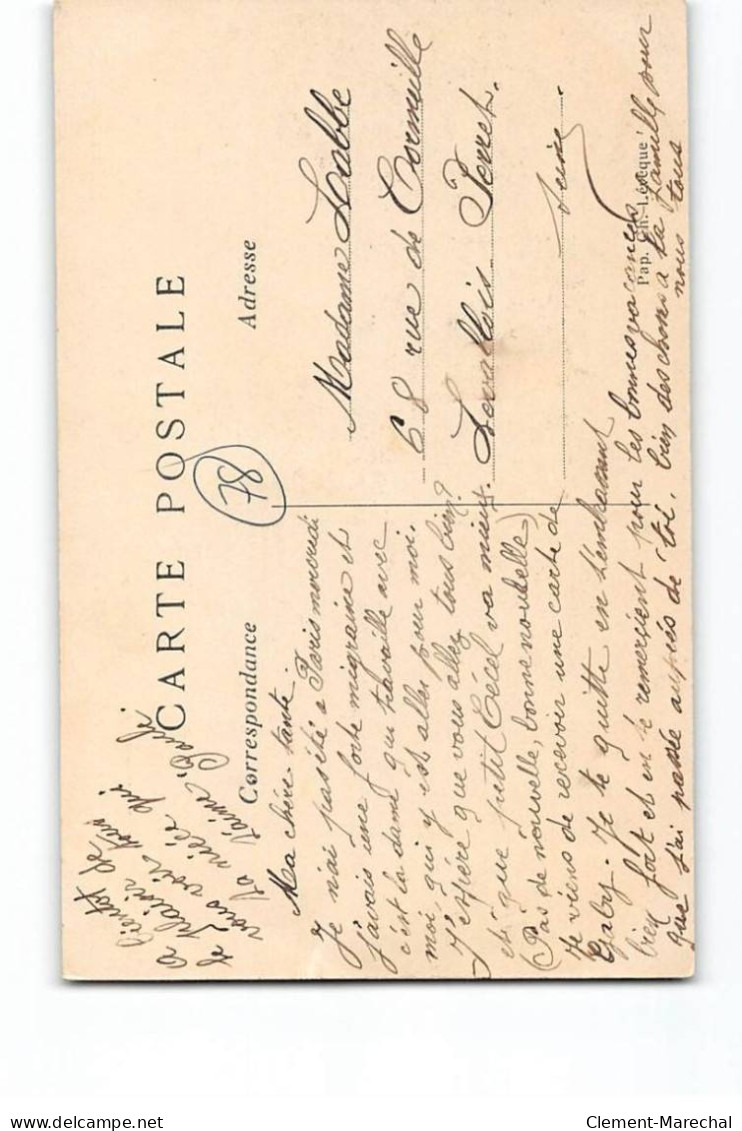 CARTE POSTALE
Correspondance
Adresse
78
Ma chère tante
Je n'ai pas été a Paris mercredi
j'avais une forte migraine et
c'est la dame qui travaille avec
moi qui y est allée pour moi.
J'espère que vous allez tous bien?
et que petit Cécel va mieux.
(Pas de nouvelle, bonne nouvelle)
Je viens de recevoir une carte de
Gaby. Je te quitte en t'embrassant
bien fort et en te remerçient pour les bonnes vacances
que j'ai passé auprès de toi. bien des choses a la famille pour
nous tous
A bientot
le plaisir de
vous voir tous
Ta nièce qui
t'aime
Madame Labbe
68 rue de Cormeille
Levallois Perret.
Seine
Pap. Ch. Lévêque
delcampe.net
Clement-Marechal